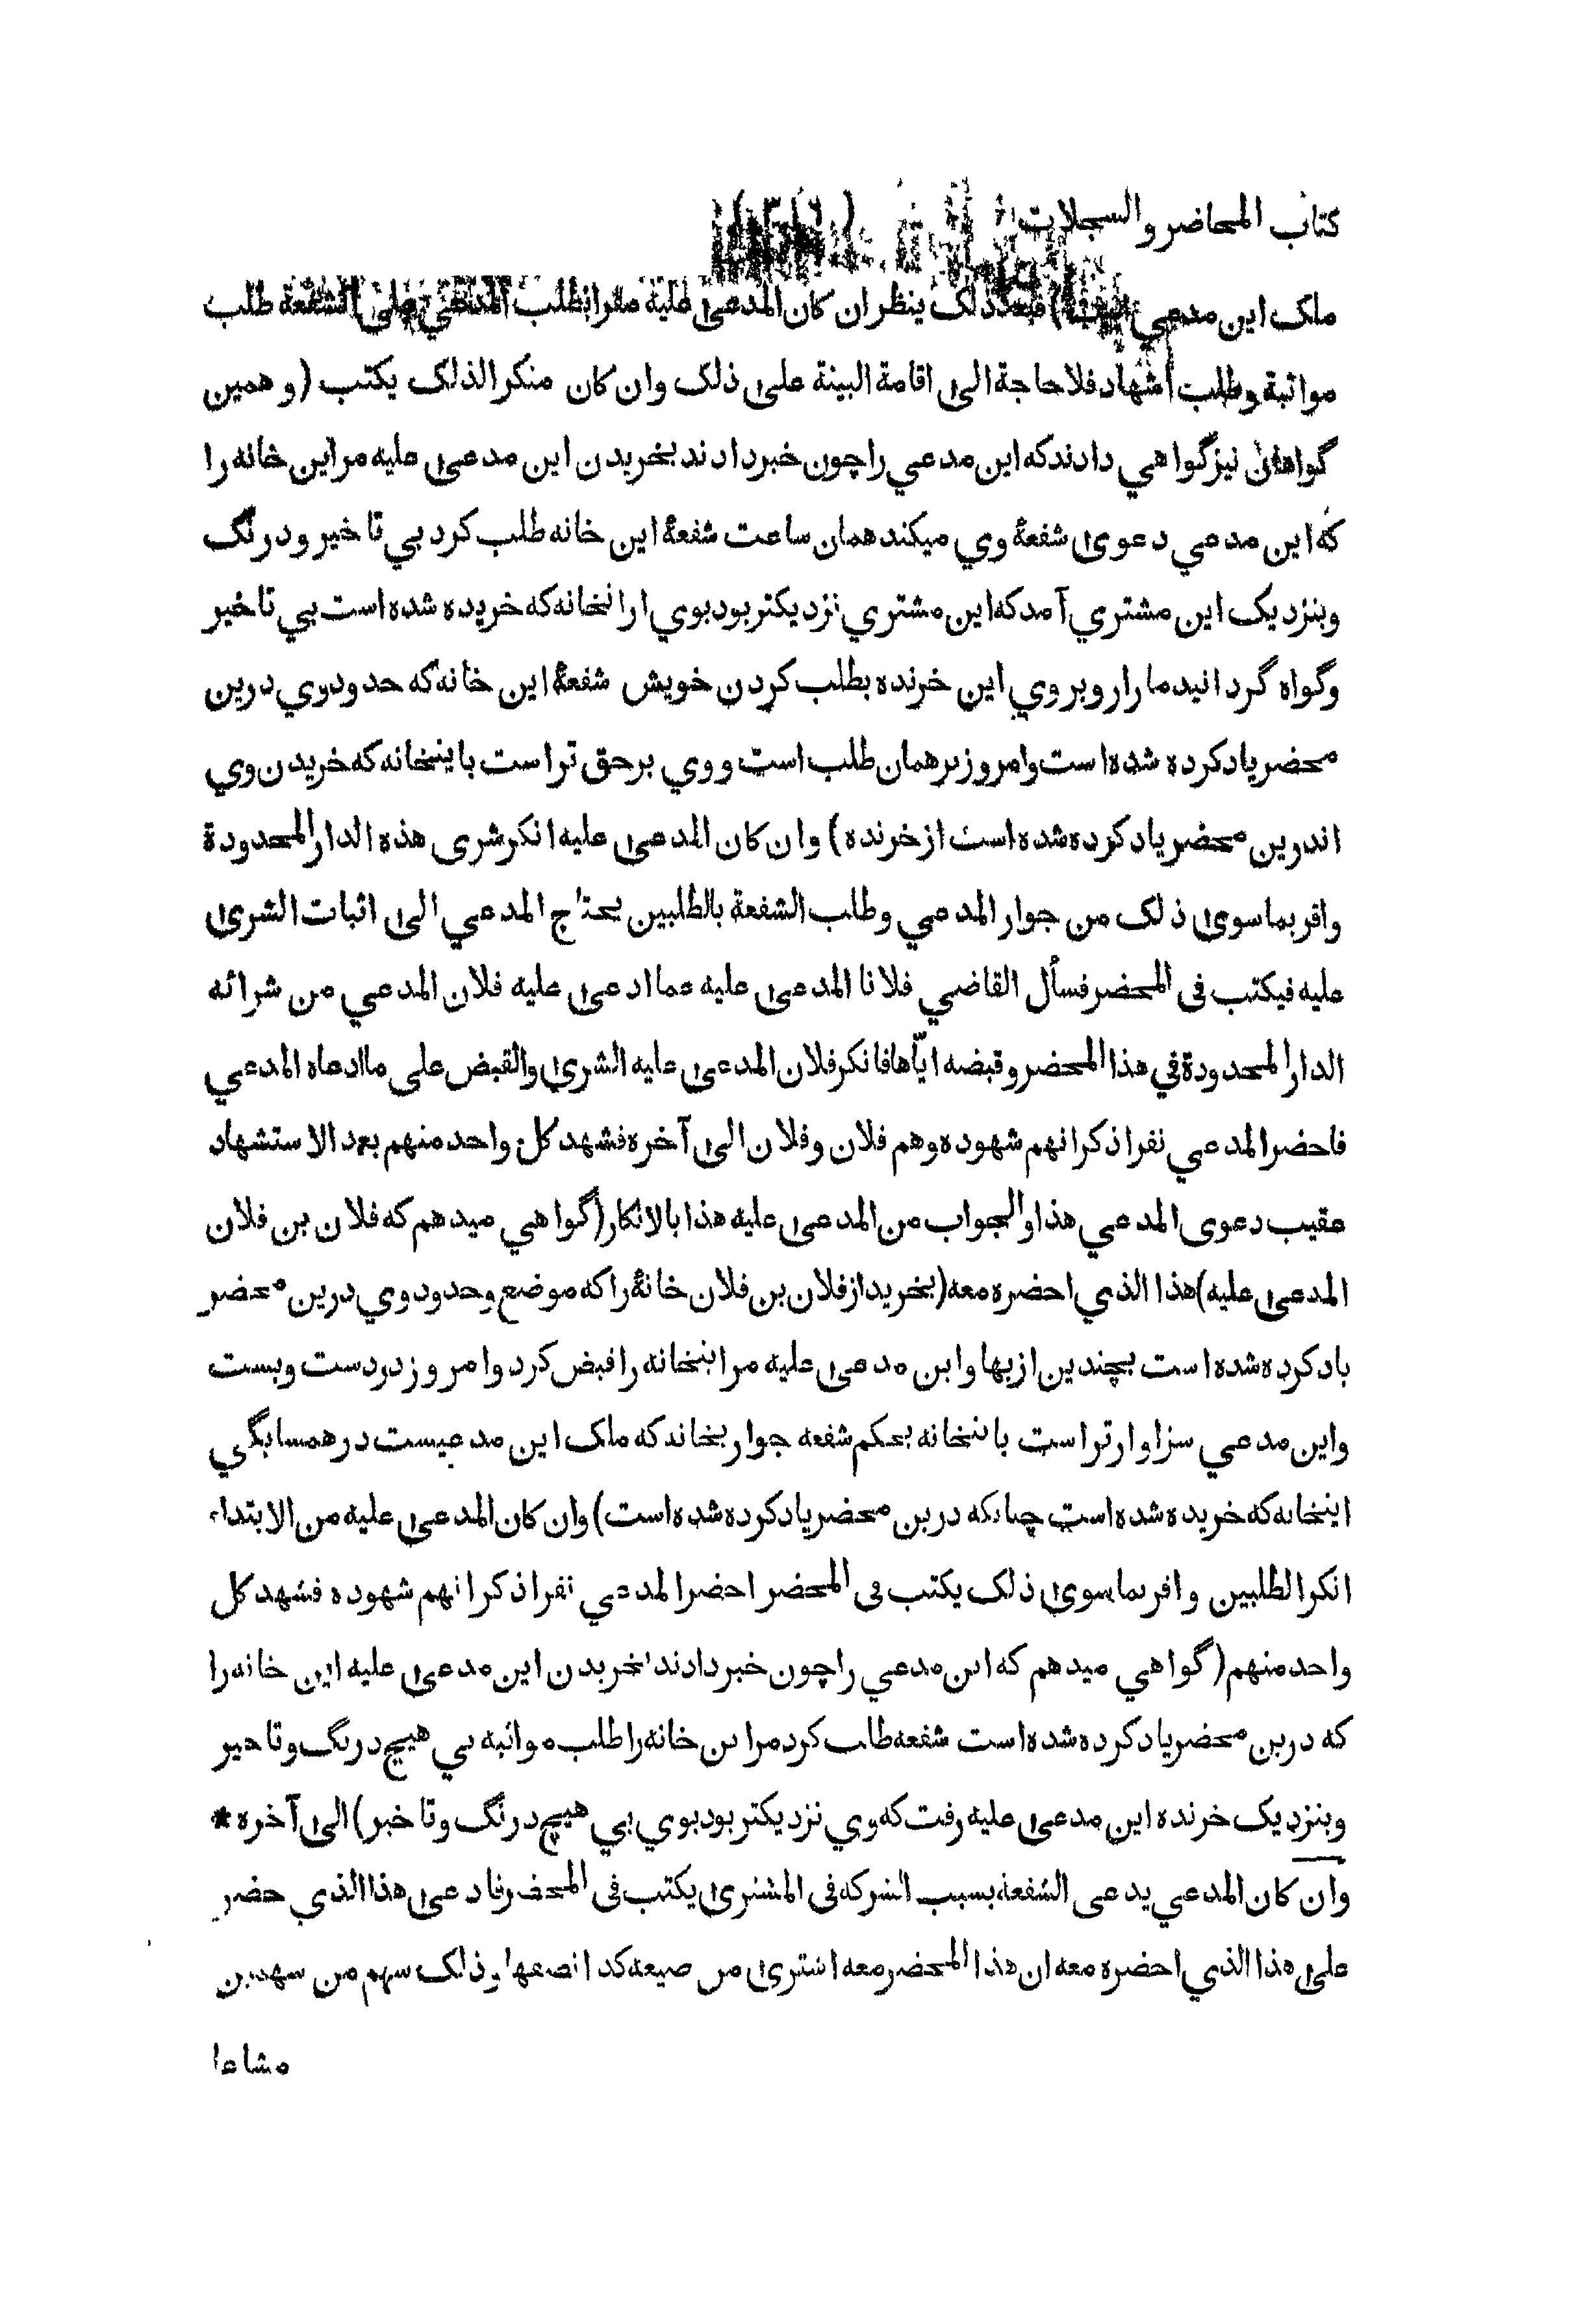 كتاب المحاضر والسجلات
ملک این مدعي فبعد ذلک ينظر ان كان المدعى عليه مقرا بطلب المدعي الشفعة طلب
مواثبة وطلب اشهاد فلا حاجة الى اقامة البينة على ذلک وان كان منكرا لذلک يكتب (و همین
گواهان نیز گواهي دادند که این مدعي را چون خبر دادند بخریدن این مدعى علیه مر این خانه را
که این مدعي دعوى شفعهٔ وي میکند همان ساعت شفعهٔ این خانه طلب کرد بي تاخیر و درنگ
وبنزدیک این مشتري آمد که این مشتري نزدیکتر بود بوي ازانخانه که خریده شده است بي تاخیر
وگواه گردانید ما را روبروي این خرنده بطلب کردن خویش شفعهٔ این خانه که حدود وي درین
محضر یاد کرده شده است وامروز بر همان طلب است و وي برحق تراست باینخانه که خریدن وي
اندرین محضر یاد کرده شده است از خرنده) وان كان المدعى عليه انكر شرى هذه الدار المحدودة
واقر بما سوى ذلک من جوار المدعي وطلب الشفعة بالطلبين يحتاج المدعي الى اثبات الشرى
عليه فيكتب فى المحضر فسأل القاضي فلانا المدعى عليه عما ادعى عليه فلان المدعي من شرائه
الدار المحدودة في هذا المحضر وقبضه ايّاها فانكر فلان المدعى عليه الشرى والقبض على ما ادعاه المدعي
فاحضر المدعي نفرا ذكر انهم شهوده وهم فلان وفلان الى آخره فشهد كل واحد منهم بعد الاستشهاد
عقيب دعوى المدعي هذا والجواب من المدعى عليه هذا بالانكار (گواهي میدهم که فلان بن فلان
المدعى عليه) هذا الذي احضره معه (بخرید از فلان بن فلان خانهٔ را که موضع وحدود وي درین محضر
یاد کرده شده است بچندین ازبها واین مدعى علیه مر اینخانه را قبض کرد وامروز در دست ویست
واین مدعي سزاوارتر است باینخانه بحکم شفعه جوار بخانه که ملک این مدعیست در همسایگي
اینخانه که خریده شده است چنانکه درین محضر یاد کرده شده است) وان كان المدعى عليه من الابتداء
انكر الطلبين واقر بما سوى ذلک يكتب فى المحضر احضر المدعي نفرا ذكر انهم شهوده فشهد كل
واحد منهم (گواهي میدهم که این مدعي را چون خبر دادند بخریدن این مدعى علیه این خانه را
که درین محضر یاد کرده شده است شفعه طلب کرد مر این خانه را طلب مواثبه بي هیچ درنگ وتاخیر
وبنزدیک خرنده این مدعى علیه رفت که وي نزدیکتر بود بوي بي هیچ درنگ وتاخیر) الى آخره *
وان كان المدعي يدعى الشفعة بسبب الشركة فى المشترى يكتب فى المحضر فادعى هذا الذي حضر
على هذا الذي احضره معه ان هذا المحضر معه اشترى من ضيعة كذا نصفها وذلک سهم من سهمين
مشاعا